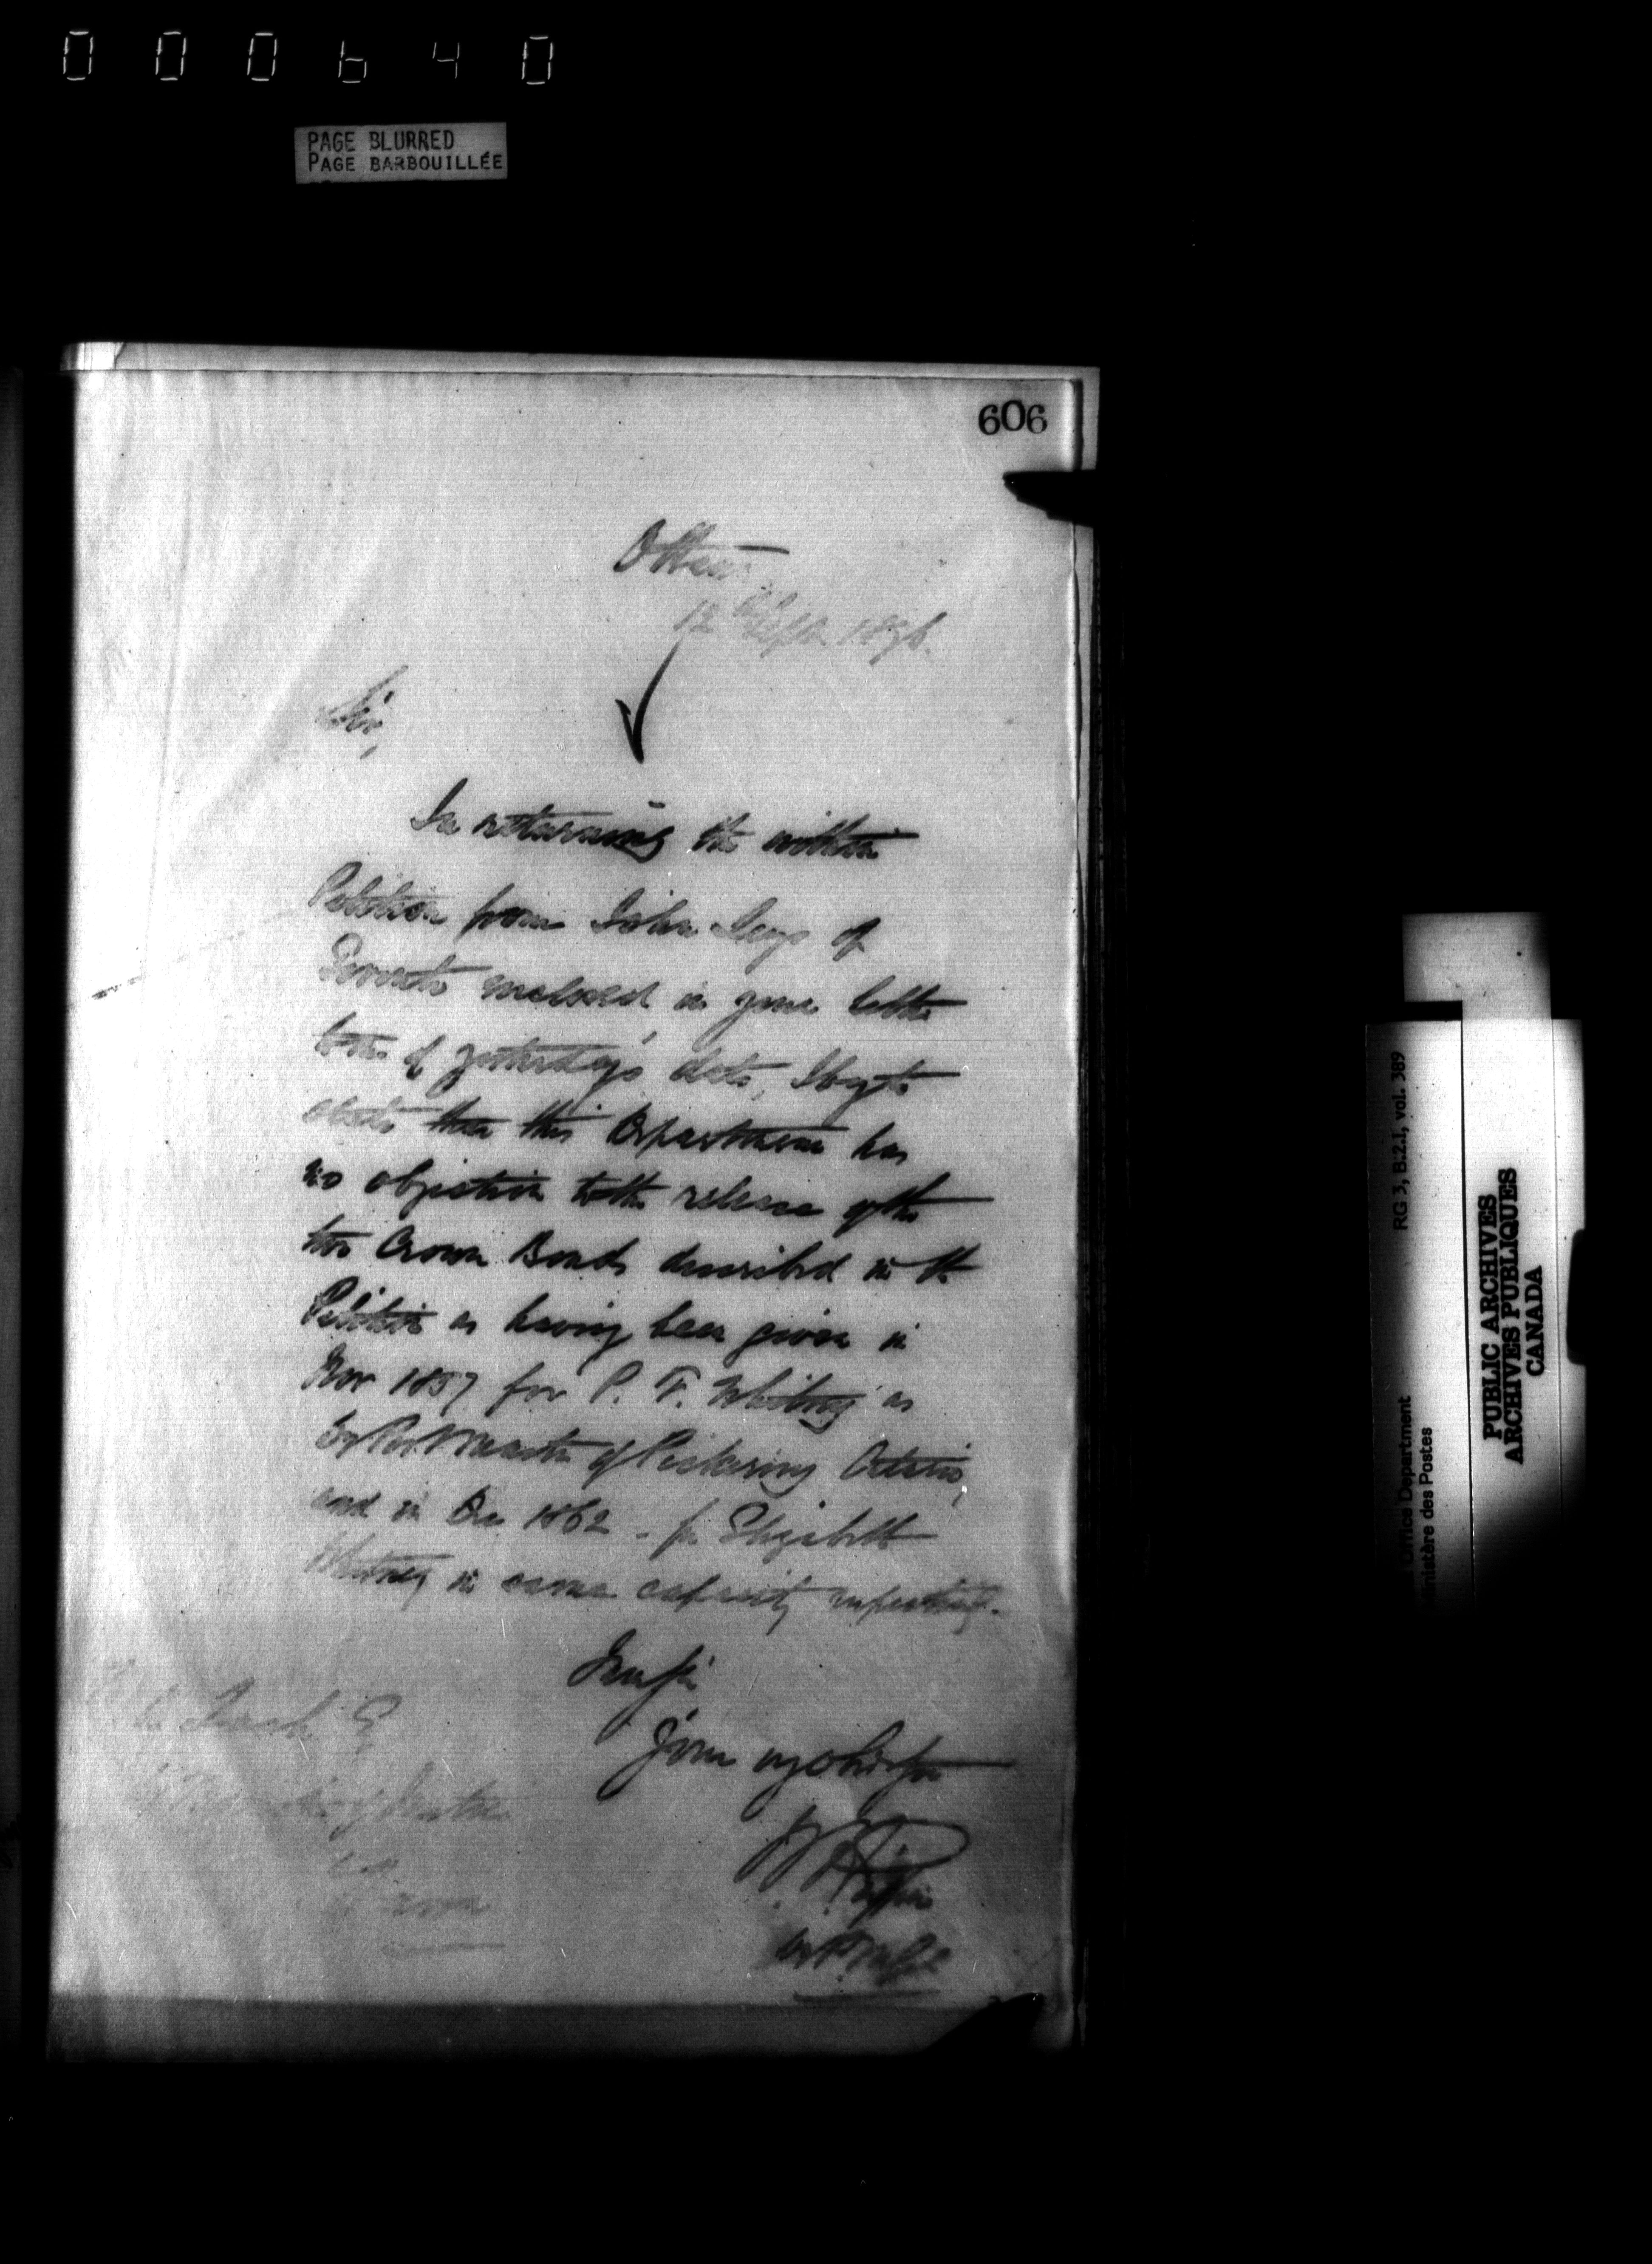 000640
PAGE BLURRED
PAGE BARBOUILLÉE
606
Ottawa
12th Sept 1876.
Sir,
In returning the within
Petition from John Leys of
Toronto enclosed in your letter
to me of yesterday's date, I beg to
state that this Department has
no objection to the release of the
two Crown Bonds described in the
Petition as having been given in
Nov 1857 for P. F. Whitney as
Postmaster of Pickering Ontario,
and in Dec 1862 - for Elizabeth
Whitney in same capacity respectively.
I am Sir
Your my ob Ser
Minister of Justice
RG 3, B.2.1, vol. 389
Office Department
Ministère des Postes
PUBLIC ARCHIVES
ARCHIVES PUBLIQUES
CANADA